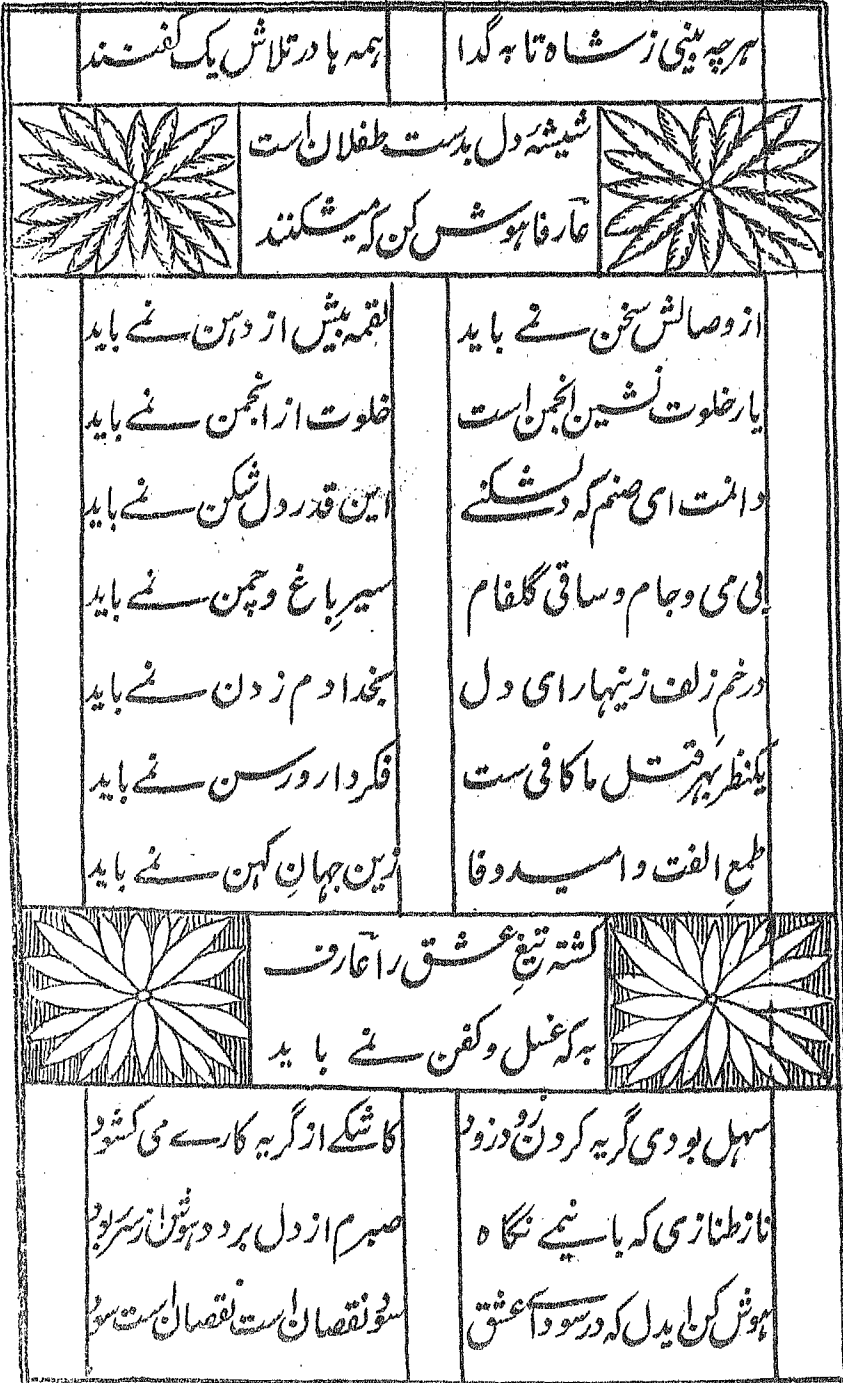 ہرچہ بینی ز شاہ تا بہ گدا ہمہ ہا در تلاش یک کفنند
شیشۂ دل بدست طفلان است
عارفا ہوش کن کہ میشکنند
از وصالش سخن نمے باید لقمہ بیش از دہن نمے باید
یار خلوت نشین انجمن است خلوت از انجمن نمے باید
دانمت ای صنم کہ دلشکنے این قدر دل شکن نمے باید
بی می و جام و ساقی گلفام سیرِ باغ و چمن نمے باید
در خمِ زلف زینہار ای دل بخدا دم زدن نمے باید
یکنظر بہرِ قتل ما کافی ست فکر دار و رسن نمے باید
طمعِ الفت و امید وفا زین جہانِ کہن نمے باید
کشتہ تیغِ عشق را عارف
بہ کہ غسل و کفن نمے باید
سہل بودی گریہ کردن زود زود کاشکے از گریہ کارے می کشود
ناز طنازی کہ با نیمے نگاہ صبرم از دل برد و ہوش از سر ربود
ہوش کن ایدل کہ در سودای عشق سود نقصان است نقصان است سود